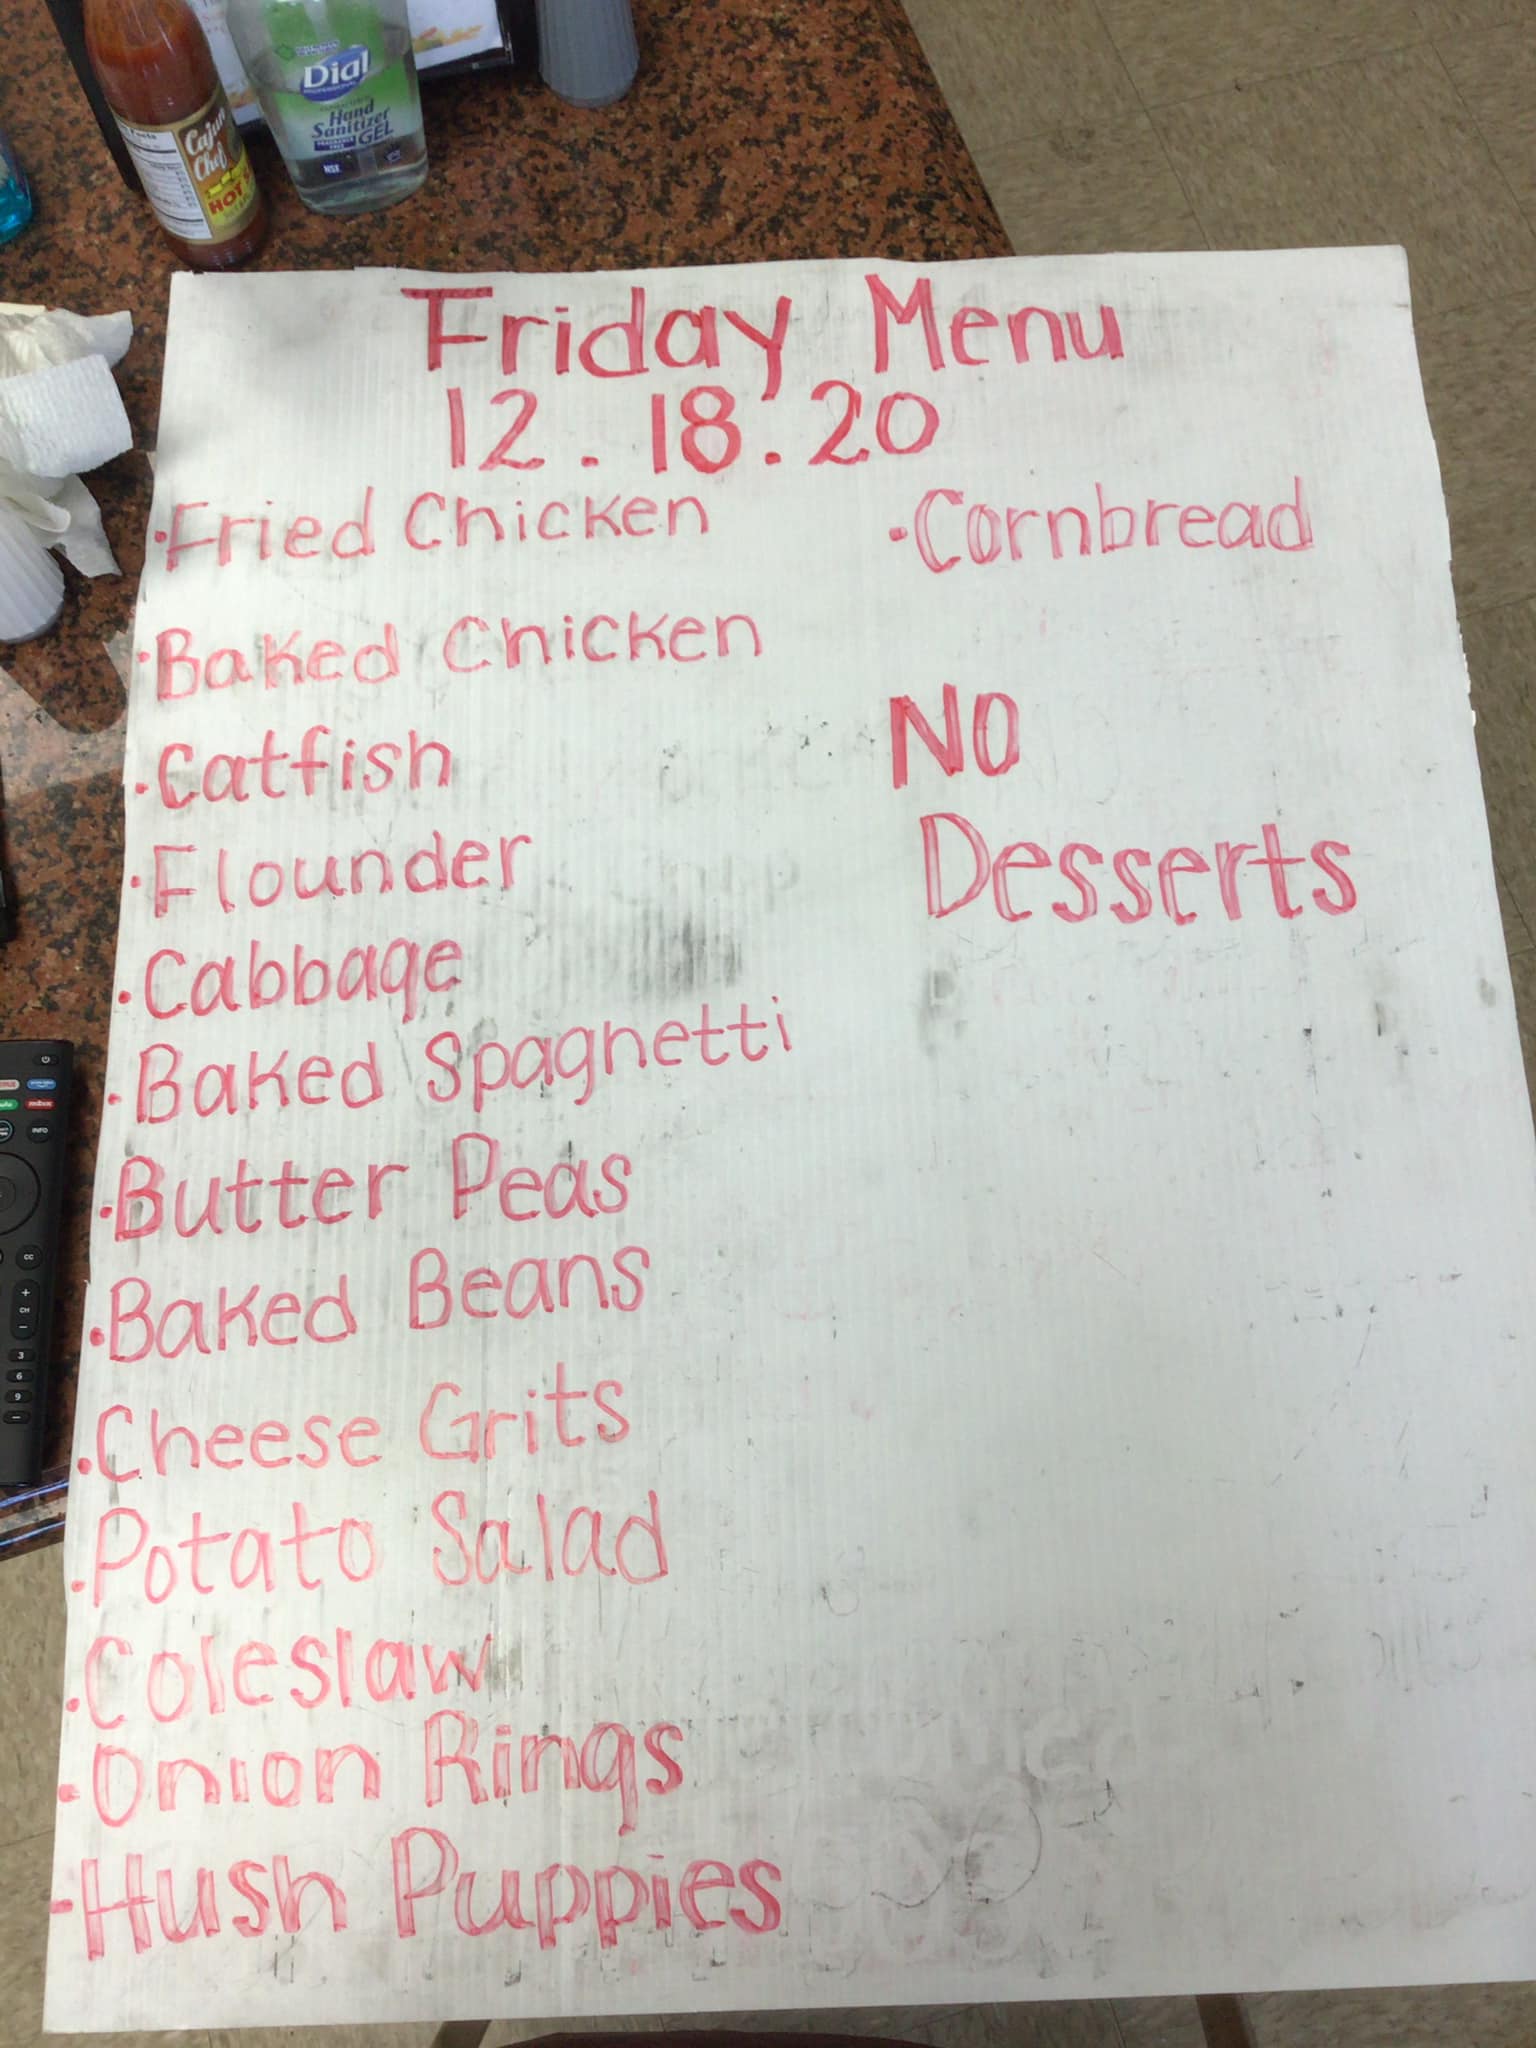 Cajun
Chef
HOT
Dial
PROFESSIONAL
Hand
Sanitizer
GEL
FRAGRANCE
FREE
NSF
Friday Menu
12.18.20
·Fried Chicken
·Baked Chicken
·Catfish
·Flounder
·Cabbage
·Baked Spaghetti
·Butter Peas
·Baked Beans
·Cheese Grits
·Potato Salad
·Coleslaw
·Onion Rings
·Hush Puppies
·Cornbread
NO
Desserts
INFO
CC
+
CH
-
3
6
9